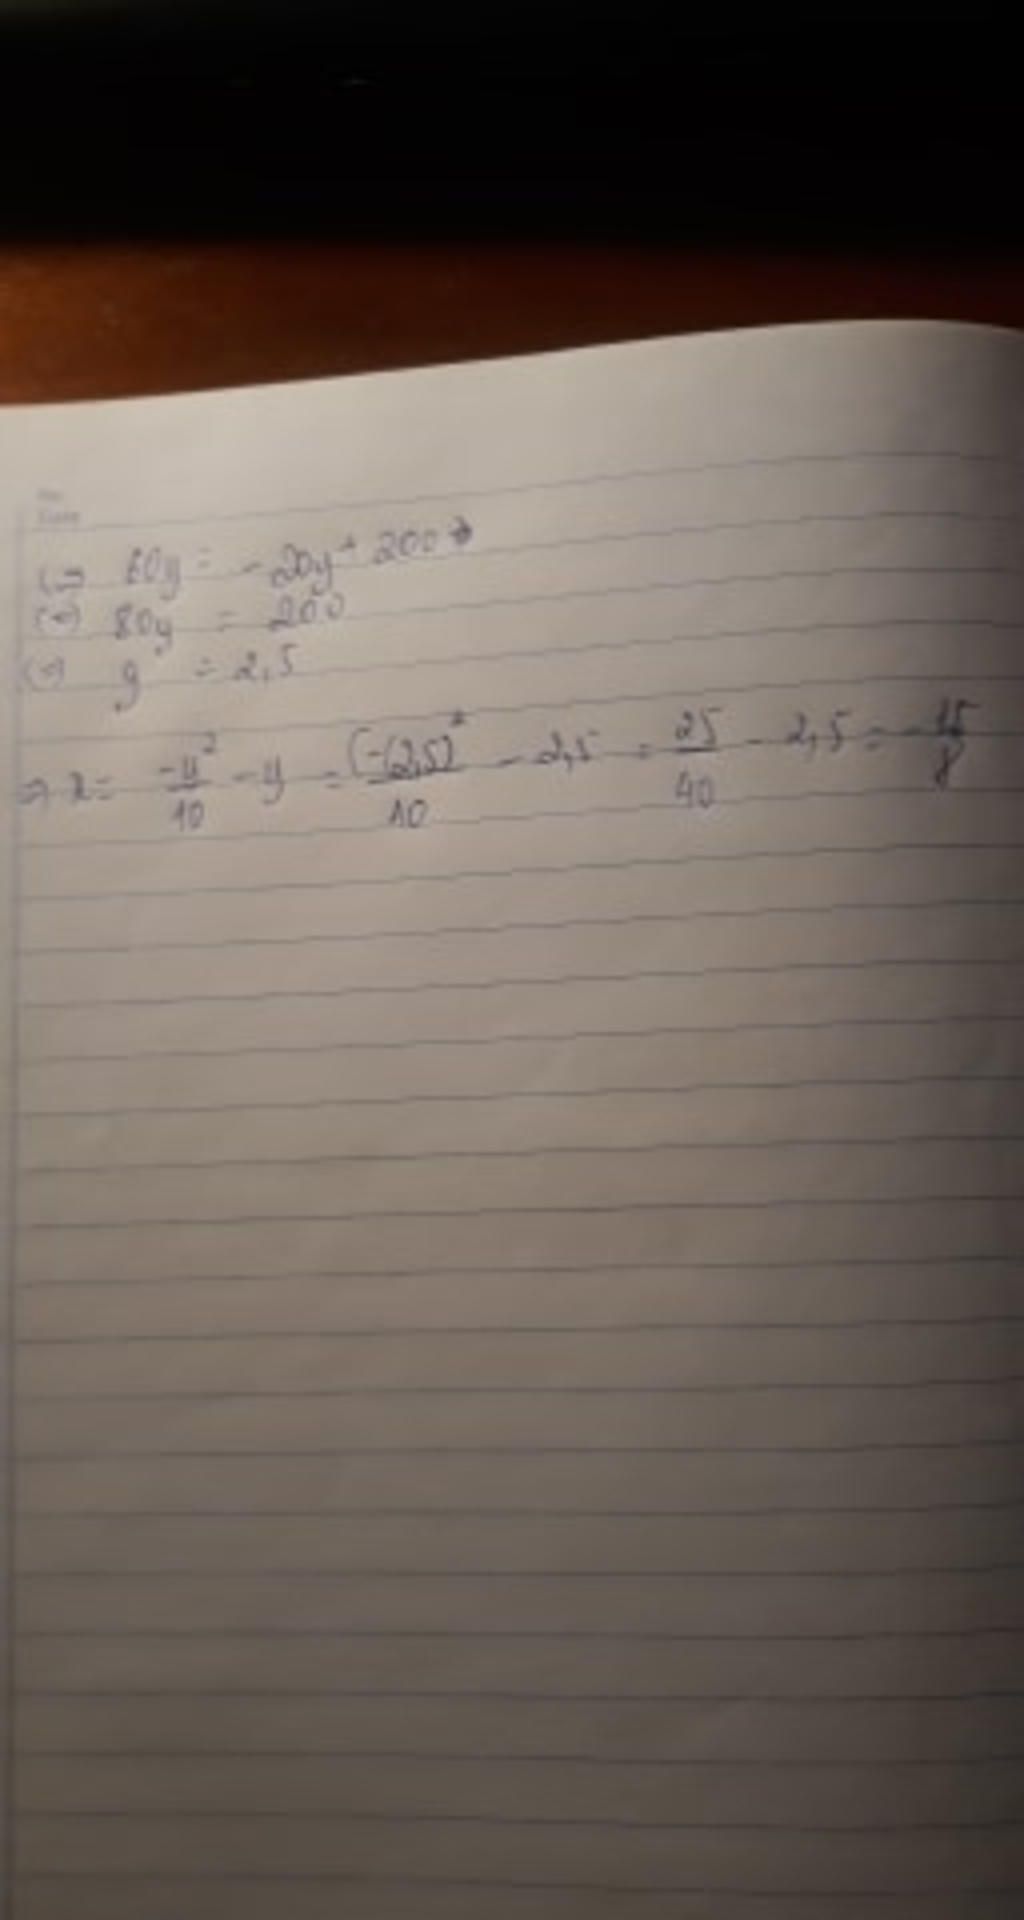 Date
(=) 60y = -20y + 200
(=) 80y = 200
(=) y = 2,5
=> x = -y²/10 - y = (-(2,5)²/10 - 2,5 = 25/40 - 2,5 = -15/8